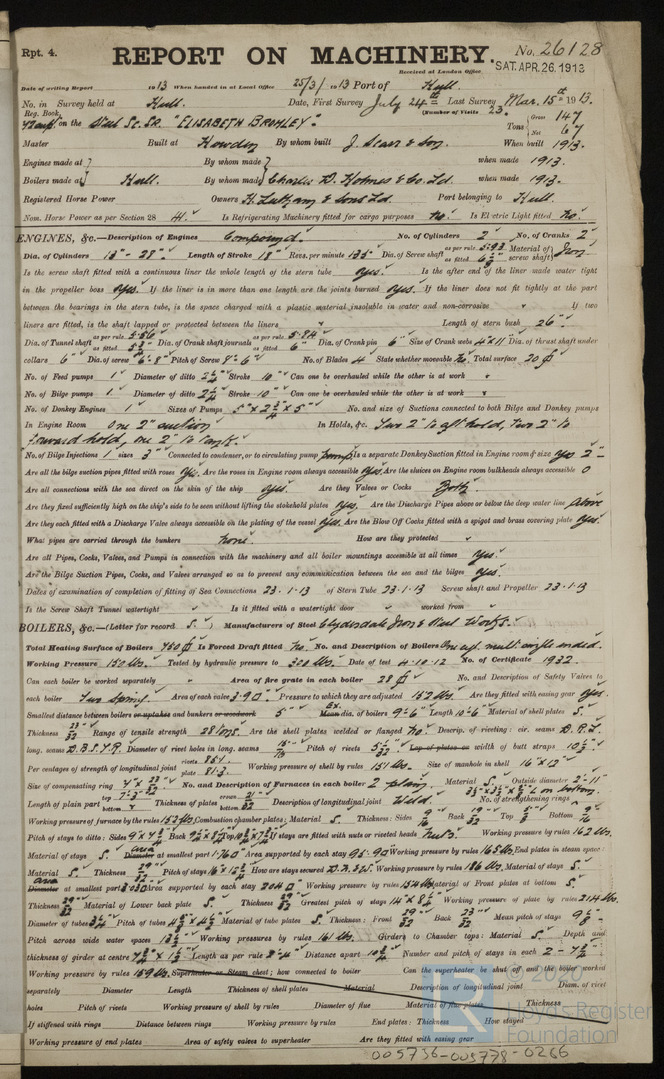 Rpt. 4.
REPORT ON MACHINERY.
No. 26128
Received at London Office SAT. APR. 26. 1913
Date of writing Report 1913 When handed in at Local Office 25/3/1913 Port of Hull.
No. in Survey held at Hull. Date, First Survey July 24th Last Survey Mar. 15th 1913.
Reg. Book. (Number of Visits 23.
on the Steel Sc. Sr. "ELISABETH BROMLEY". Tons { Gross 147 Net 67
Master Built at Howden By whom built J. Scarr & Son. When built 1913.
Engines made at } By whom made } when made 1913.
Boilers made at } Hull. By whom made } Charles D. Holmes & Co. Ld. when made 1913.
Registered Horse Power Owners Port belonging to Hull.
Nom. Horse Power as per Section 28 41. Is Refrigerating Machinery fitted for cargo purposes No. Is Electric Light fitted No.
ENGINES, &c.—Description of Engines Compound. No. of Cylinders 2 No. of Cranks 2
Dia. of Cylinders 13"-28" Length of Stroke 18" Revs. per minute 135 Dia. of Screw shaft as per rule 5.93 as fitted Material of screw shaft } Iron
Is the screw shaft fitted with a continuous liner the whole length of the stern tube Yes. Is the after end of the liner made water tight
in the propeller boss Yes. If the liner is in more than one length are the joints burned Yes. If the liner does not fit tightly at the part
between the bearings in the stern tube, is the space charged with a plastic material insoluble in water and non-corrosive If two
liners are fitted, is the shaft lapped or protected between the liners Length of stern bush 26".
Dia. of Tunnel shaft as per rule 5.56 as fitted Dia. of Crank shaft journals as per rule 5.84 as fitted 6" Dia. of Crank pin 6" Size of Crank webs 4"x11" Dia. of thrust shaft under
collars 6" Dia. of screw 6'-8" Pitch of Screw 9'-6" No. of Blades 4 State whether moveable No. Total surface 20
No. of Feed pumps 1 Diameter of ditto 2¼ Stroke 10" Can one be overhauled while the other is at work
No. of Bilge pumps 1. Diameter of ditto 2¼ Stroke 10" Can one be overhauled while the other is at work
No. of Donkey Engines 1 Sizes of Pumps 5"x2¾"x5" No. and size of Suctions connected to both Bilge and Donkey pumps
In Engine Room One 2" suction In Holds, &c. Two 2" to aft hold, two 2" to
forward hold, one 2" to tank.
No. of Bilge Injections 1 sizes 3" Connected to condenser, or to circulating pump pump Is a separate Donkey Suction fitted in Engine room & size Yes 2"
Are all the bilge suction pipes fitted with roses Yes. Are the roses in Engine room always accessible Yes. Are the sluices on Engine room bulkheads always accessible 0
Are all connections with the sea direct on the skin of the ship Yes. Are they Valves or Cocks Both.
Are they fixed sufficiently high on the ship's side to be seen without lifting the stokehold plates Yes. Are the Discharge Pipes above or below the deep water line above
Are they each fitted with a Discharge Valve always accessible on the plating of the vessel Yes. Are the Blow Off Cocks fitted with a spigot and brass covering plate Yes.
What pipes are carried through the bunkers None. How are they protected
Are all Pipes, Cocks, Valves, and Pumps in connection with the machinery and all boiler mountings accessible at all times Yes.
Are the Bilge Suction Pipes, Cocks, and Valves arranged so as to prevent any communication between the sea and the bilges Yes.
Dates of examination of completion of fitting of Sea Connections 23.1.13 of Stern Tube 23.1.13 Screw shaft and Propeller 23.1.13
Is the Screw Shaft Tunnel watertight Is it fitted with a watertight door worked from
BOILERS, &c.—(Letter for record S.) Manufacturers of Steel Clydesdale Iron & Steel Works.
Total Heating Surface of Boilers 750 Is Forced Draft fitted No. No. and Description of Boilers One cyl. mult. single ended.
Working Pressure 150 lbs. Tested by hydraulic pressure to 300 lbs. Date of test 4.10.12 No. of Certificate 1932.
Can each boiler be worked separately Area of fire grate in each boiler 28 No. and Description of Safety Valves to
each boiler Two Spring. Area of each valve 3.90 Pressure to which they are adjusted 152 lbs. Are they fitted with easing gear Yes.
Smallest distance between boilers or uptakes and bunkers or woodwork 5" Mean Ex. dia. of boilers 9'-6" Length 10'-6" Material of shell plates S.
Thickness 23/32 Range of tensile strength 28 tons. Are the shell plates welded or flanged No Descrip. of riveting: cir. seams D.R.L.
long. seams D.B.S.T.R. Diameter of rivet holes in long. seams 15/16 Pitch of rivets Lap of plates or width of butt straps 10½"
Per centages of strength of longitudinal joint rivets 85.1 plate 81.3 Working pressure of shell by rules 151 lbs. Size of manhole in shell 16"x12"
Size of compensating ring No. and Description of Furnaces in each boiler 2 plain. Material S. Outside diameter 2'-11"
Length of plain part top 7'-3" bottom Thickness of plates crown bottom 21/32 Description of longitudinal joint Weld. No. of strengthening rings on bottom.
Working pressure of furnace by the rules 152 lbs. Combustion chamber plates: Material S. Thickness: Sides Back Top Bottom
Pitch of stays to ditto: Sides Back Top If stays are fitted with nuts or riveted heads Nuts. Working pressure by rules 162 lbs.
Material of stays S. Diameter area at smallest part 1.760 Area supported by each stay 95.90 Working pressure by rules 165 lbs. End plates in steam space:
Material S. Thickness 29/32 Pitch of stays How are stays secured D.N.&W. Working pressure by rules 156 lbs. Material of stays S.
Diameter area at smallest part Area supported by each stay 204 Working pressure by rules 154 lbs. Material of Front plates at bottom S.
Thickness 29/32 Material of Lower back plate S. Thickness 29/32 Greatest pitch of stays Working pressure of plate by rules 214 lbs.
Diameter of tubes 3¼ Pitch of tubes Material of tube plates S. Thickness: Front 29/32 Back 23/32 Mean pitch of stays
Pitch across wide water spaces Working pressures by rules 161 lbs. Girders to Chamber tops: Material S. Depth and
thickness of girder at centre Length as per rule Distance apart Number and pitch of stays in each
Working pressure by rules 159 lbs. Superheater or Steam chest; how connected to boiler Can the superheater be shut off and the boiler worked
separately Diameter Length Thickness of shell plates Material Description of longitudinal joint Diam. of rivet
holes Pitch of rivets Working pressure of shell by rules Diameter of flue Material of flue plates Thickness
If stiffened with rings Distance between rings Working pressure by rules End plates: Thickness How stayed
Working pressure of end plates Area of safety valves to superheater Are they fitted with easing gear
Lloyd's Register
Foundation
005736-005778-0266